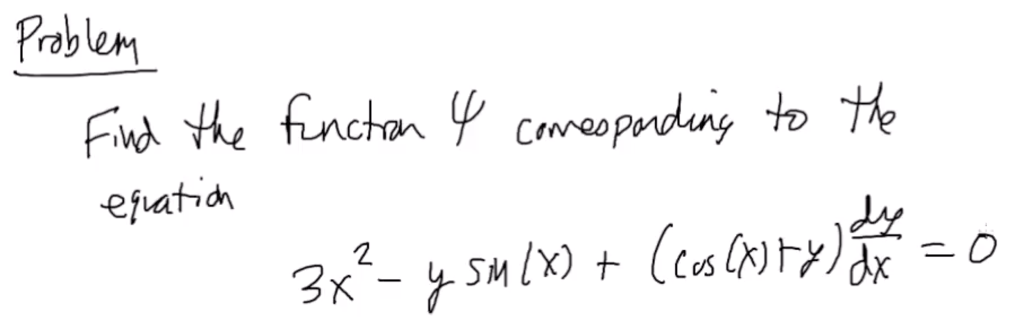 Problem
Find the function ψ corresponding to the
equation
3x² - y sin(x) + (cos(x)+y) dy/dx = 0